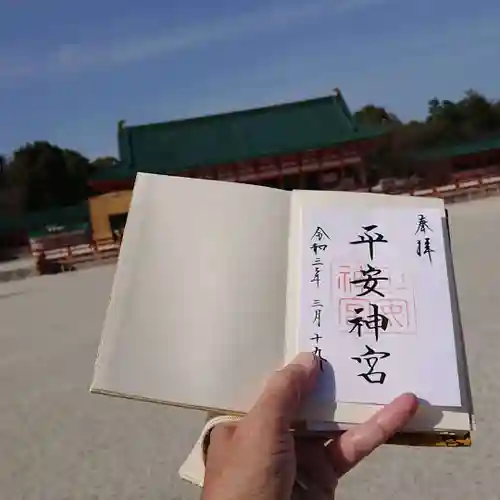 奉拝
平安神宮
令和三年三月十九